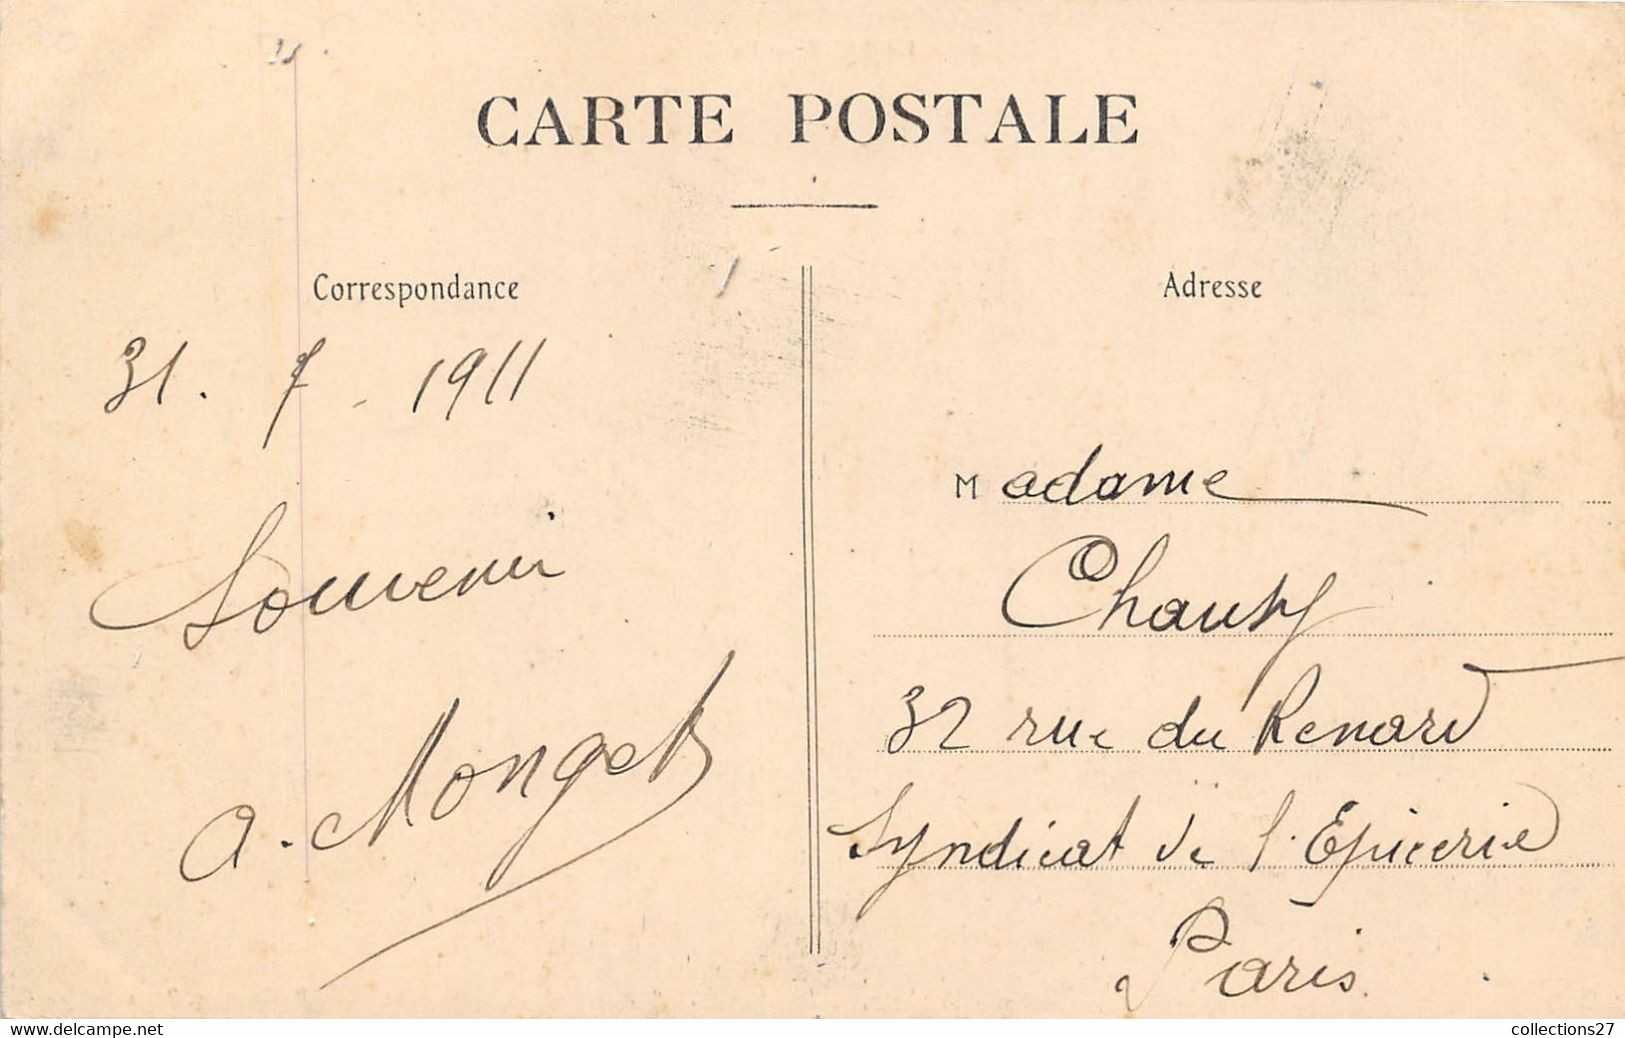 CARTE POSTALE
Correspondance
31. 7. 1911
Souvenir
A. Monget
Adresse
Madame
32 rue du Renard
Syndicat de l'Epicerie
Paris
www.delcampe.net
collections27